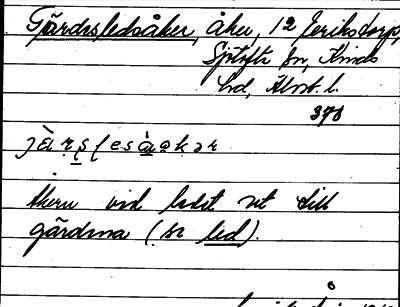 Gärdsledsåker, åker, 12 Jeriksdorp,
Sjötofta sn, Kinds
hd, Älvsb. l.
376
åkern vid ledet ut till
gärdena (se led).